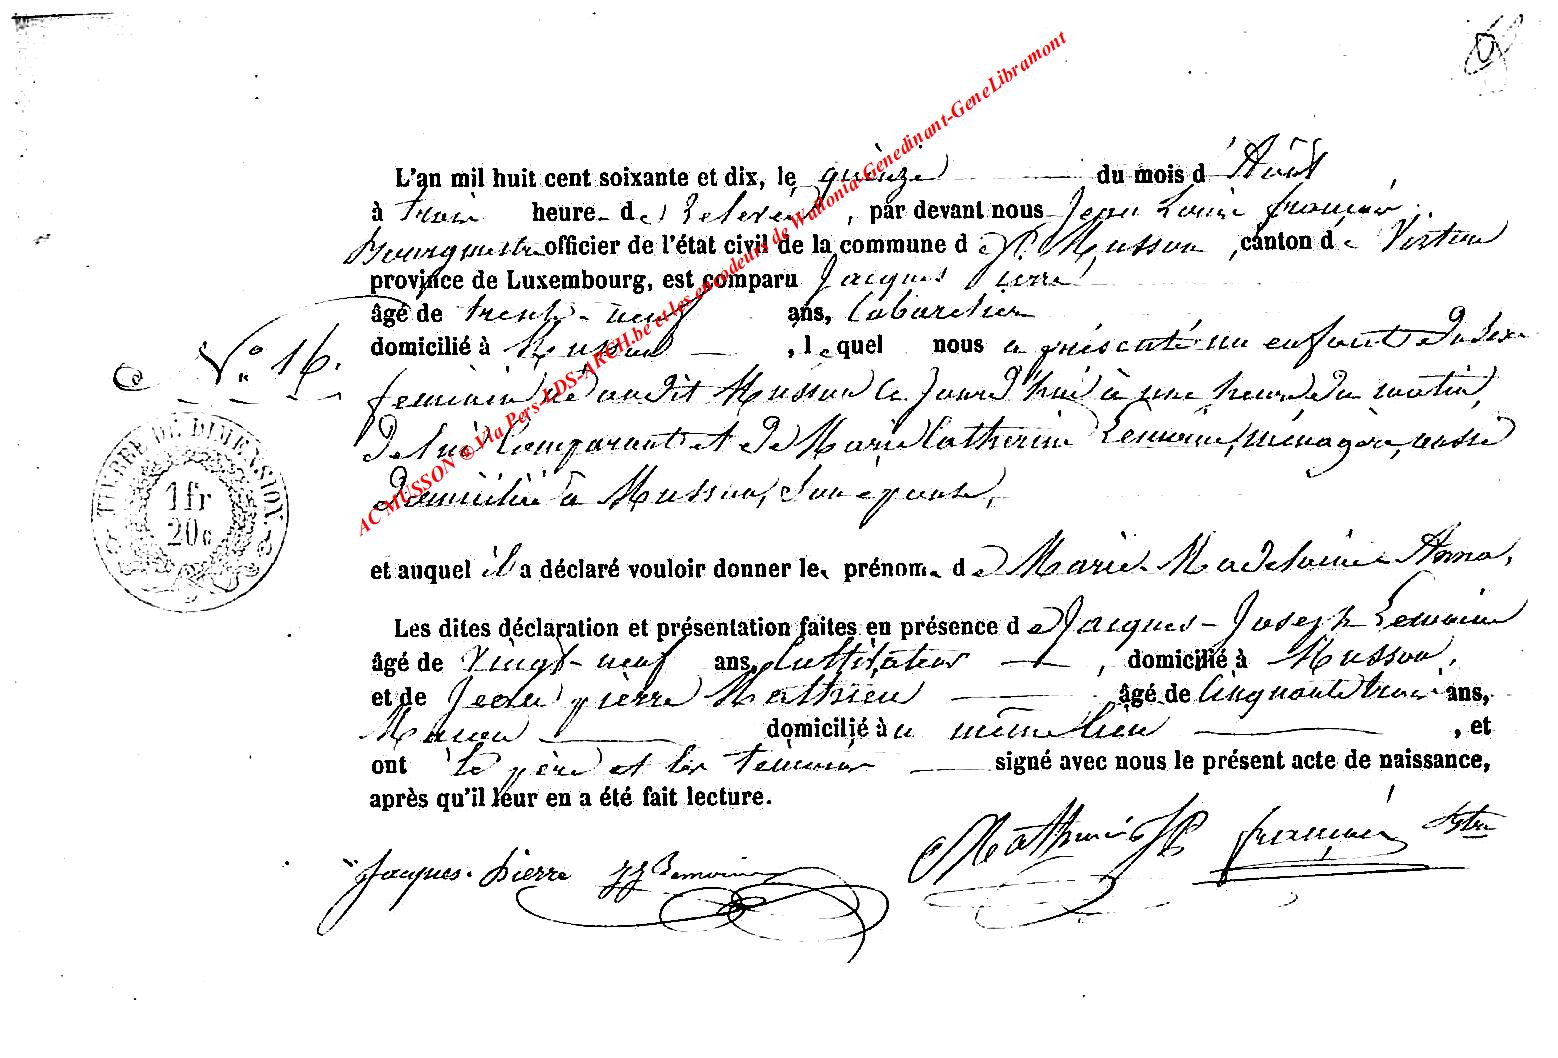 L'an mil huit cent soixante et dix, le quinze du mois d'Août
à trois heures de relevée, par devant nous Jean Louis François,
Bourgmestre officier de l'état civil de la commune de Musson, canton de Virton
province de Luxembourg, est comparu Jacques Pierre
âgé de trente-neuf ans, Cabaretier
domicilié à Musson, lequel nous a présenté un enfant du sexe
N° 16.
féminin né audit Musson ce jourd'hui à une heure du matin,
de lui Comparant et de Marie Catherine Lemoine, ménagère, aussi
domiciliée à Musson, son épouse,
TIMBRE DE DIMENSION.
1 fr
20 c
et auquel il a déclaré vouloir donner les prénoms de Marie Madelaine Anna,
Les dites déclaration et présentation faites en présence de Jacques-Joseph Lemoine
âgé de Vingt-neuf ans, Cultivateur, domicilié à Musson,
et de Jean pierre Mathieu âgé de Cinquante trois ans,
Maçon domicilié au même lieu, et
ont le père et les témoins signé avec nous le présent acte de naissance,
après qu'il leur en a été fait lecture.
Jacques Pierre JJ Lemoine Mathieu JP françois
AC MUSSON © Via Pers-LDS-ARCH.be et les encodeurs de Wallonia-Genedinant-GeneLibramont